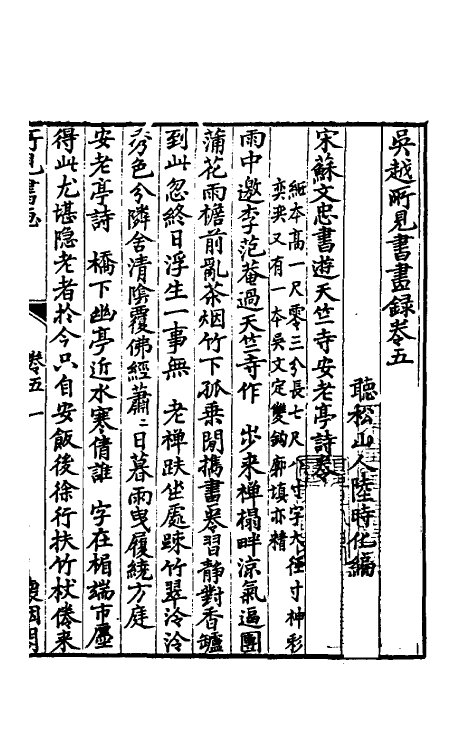 吳越所見書畫録卷五
聽松山人陸時化編
宋蘇文忠書遊天竺寺安老亭詩卷
紙本髙一尺零三分長七尺八寸字大徑寸神彩
奕奕又有一本吳文定雙鈎廓填亦精
雨中邀李范菴過天竺寺作　步來禅榻畔涼氣逼團
蒲花雨檐前亂茶烟竹下孤乗閒攜書卷習静對香罏
到此忽終日浮生一事無　老禅趺坐處踈竹翠泠泠
秀色分隣舍清隂覆佛經蕭〻日暮雨曳履繞方庭
安老亭詩　橋下幽亭近水寒倩誰　字在楣端市廛
得此尤堪隐老者於今只自安飯後徐行扶竹杖倦来
所見書画
卷五　一
懷烟閣